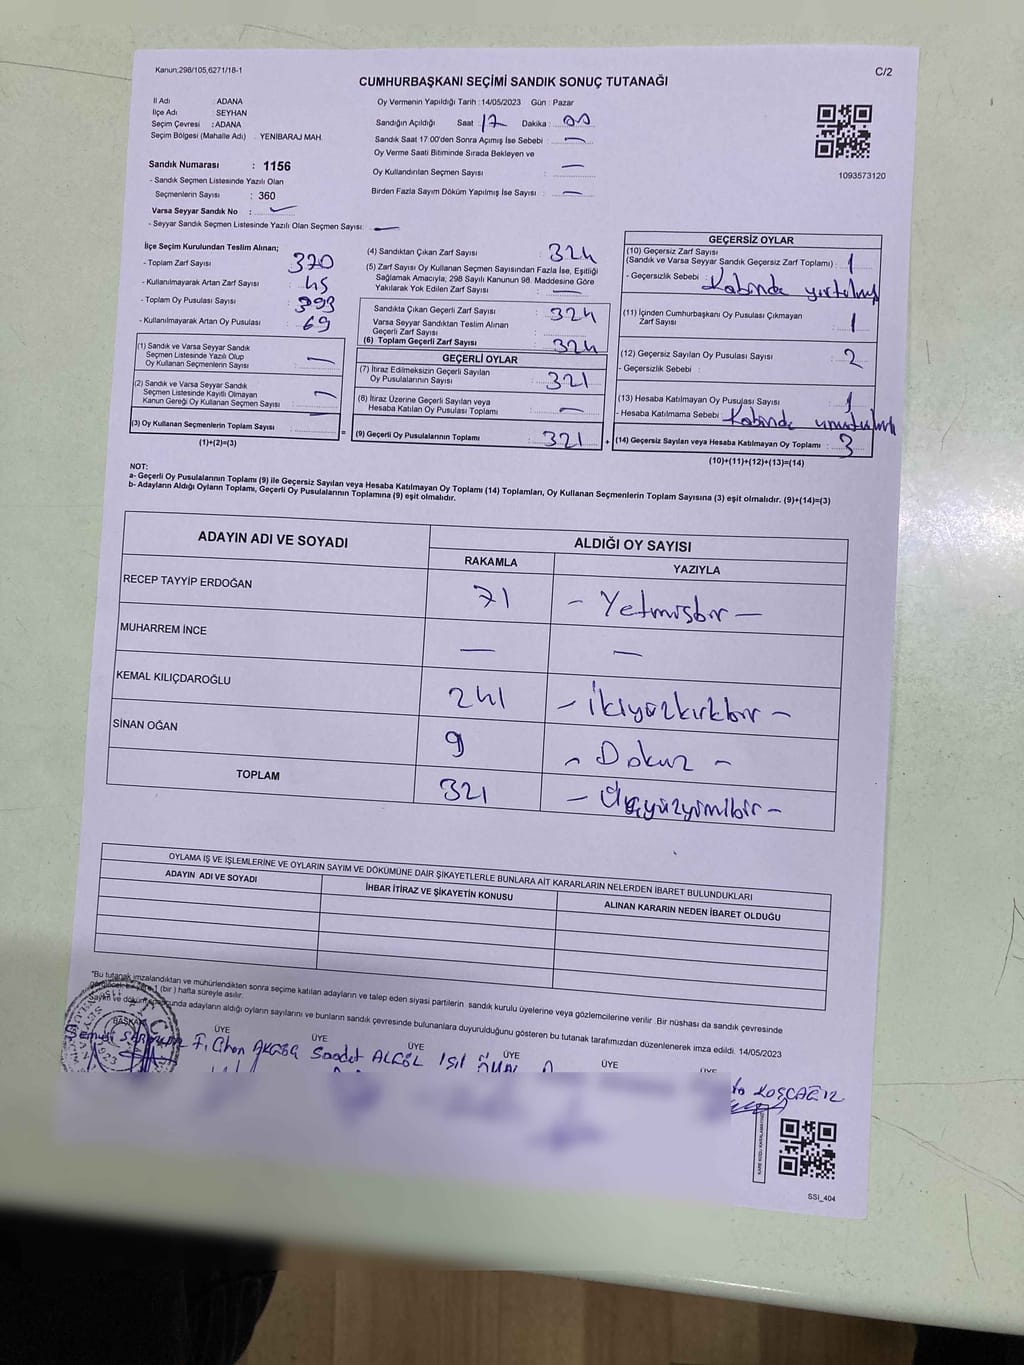 Kanun:298/105,6271/18-1
C/2
CUMHURBAŞKANI SEÇİMİ SANDIK SONUÇ TUTANAĞI
İl Adı : ADANA
İlçe Adı : SEYHAN
Seçim Çevresi : ADANA
Seçim Bölgesi (Mahalle Adı) : YENİBARAJ MAH.
Sandık Numarası : 1156
- Sandık Seçmen Listesinde Yazılı Olan
Seçmenlerin Sayısı : 360
Varsa Seyyar Sandık No :
- Seyyar Sandık Seçmen Listesinde Yazılı Olan Seçmen Sayısı: —
Oy Vermenin Yapıldığı Tarih : 14/05/2023 Gün : Pazar
Sandığın Açıldığı Saat : 17 Dakika : 00
Sandık Saat 17:00'den Sonra Açımış İse Sebebi : —
Oy Verme Saati Bitiminde Sırada Bekleyen ve
Oy Kullandırılan Seçmen Sayısı : —
Birden Fazla Sayım Döküm Yapılmış İse Sayısı : —
1093573120
İlçe Seçim Kurulundan Teslim Alınan;
- Toplam Zarf Sayısı : 370
- Kullanılmayarak Artan Zarf Sayısı : 45
- Toplam Oy Pusulası Sayısı : 393
- Kullanılmayarak Artan Oy Pusulası : 69
(1) Sandık ve Varsa Seyyar Sandık
Seçmen Listesinde Yazılı Olup
Oy Kullanan Seçmenlerin Sayısı : —
(2) Sandık ve Varsa Seyyar Sandık
Seçmen Listesinde Kayıtlı Olmayan
Kanun Gereği Oy Kullanan Seçmen Sayısı : —
(3) Oy Kullanan Seçmenlerin Toplam Sayısı :
(1)+(2)=(3)
=
(4) Sandıktan Çıkan Zarf Sayısı : 324
(5) Zarf Sayısı Oy Kullanan Seçmen Sayısından Fazla İse, Eşitliği
Sağlamak Amacıyla; 298 Sayılı Kanunun 98. Maddesine Göre
Yakılarak Yok Edilen Zarf Sayısı : —
Sandıkta Çıkan Geçerli Zarf Sayısı : 324
Varsa Seyyar Sandıktan Teslim Alınan
Geçerli Zarf Sayısı :
(6) Toplam Geçerli Zarf Sayısı : 324
GEÇERLİ OYLAR
(7) İtiraz Edilmeksizin Geçerli Sayılan
Oy Pusulalarının Sayısı : 321
(8) İtiraz Üzerine Geçerli Sayılan veya
Hesaba Katılan Oy Pusulası Toplamı : —
(9) Geçerli Oy Pusulalarının Toplamı : 321
+
GEÇERSİZ OYLAR
(10) Geçersiz Zarf Sayısı
(Sandık ve Varsa Seyyar Sandık Geçersiz Zarf Toplamı) : 1
- Geçersizlik Sebebi : Kabinde yırtılmış
(11) İçinden Cumhurbaşkanı Oy Pusulası Çıkmayan
Zarf Sayısı : 1
(12) Geçersiz Sayılan Oy Pusulası Sayısı : 2
- Geçersizlik Sebebi :
(13) Hesaba Katılmayan Oy Pusulası Sayısı : 1
- Hesaba Katılmama Sebebi : Kabinde unutulmuş
(14) Geçersiz Sayılan veya Hesaba Katılmayan Oy Toplamı : 3
(10)+(11)+(12)+(13)=(14)
NOT:
a- Geçerli Oy Pusulalarının Toplamı (9) ile Geçersiz Sayılan veya Hesaba Katılmayan Oy Toplamı (14) Toplamları, Oy Kullanan Seçmenlerin Toplam Sayısına (3) eşit olmalıdır. (9)+(14)=(3)
b- Adayların Aldığı Oyların Toplamı, Geçerli Oy Pusulalarının Toplamına (9) eşit olmalıdır.
ADAYIN ADI VE SOYADI
ALDIĞI OY SAYISI
RAKAMLA YAZIYLA
RECEP TAYYİP ERDOĞAN 71 - Yetmişbir -
MUHARREM İNCE — —
KEMAL KILIÇDAROĞLU 241 - İkiyüzkırkbir -
SİNAN OĞAN 9 - Dokuz -
TOPLAM 321 - Üçyüzyirmibir -
OYLAMA İŞ VE İŞLEMLERİNE VE OYLARIN SAYIM VE DÖKÜMÜNE DAİR ŞİKAYETLERLE BUNLARA AİT KARARLARIN NELERDEN İBARET BULUNDUKLARI
ADAYIN ADI VE SOYADI İHBAR İTİRAZ VE ŞİKAYETİN KONUSU ALINAN KARARIN NEDEN İBARET OLDUĞU
*Bu tutanak imzalandıktan ve mühürlendikten sonra seçime katılan adayların ve talep eden siyasi partilerin sandık kurulu üyelerine veya gözlemcilerine verilir. Bir nüshası da sandık çevresinde
1 (bir) hafta süreyle asılır.
Sayım ve döküm sonunda adayların aldığı oyların sayılarını ve bunların sandık çevresinde bulunanlara duyurulduğunu gösteren bu tutanak tarafımızdan düzenlenerek imza edildi. 14/05/2023
BAŞKAN ÜYE ÜYE ÜYE ÜYE ÜYE ÜYE
Saadet Işıl
KARE KODU KARALAMAYINIZ
SSI_404